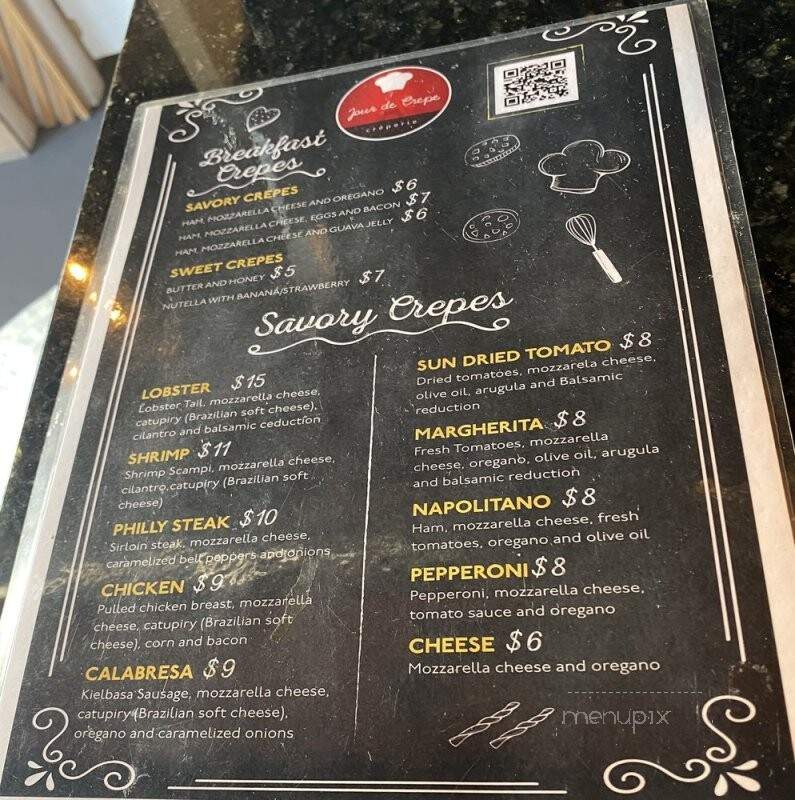 Jour de Crepe
crêperie
Breakfast
Crepes
SAVORY CREPES
HAM, MOZZARELLA CHEESE AND OREGANO $6
HAM, MOZZARELLA CHEESE, EGGS AND BACON $7
HAM, MOZZARELLA CHEESE AND GUAVA JELLY $6
SWEET CREPES
BUTTER AND HONEY $5
NUTELLA WITH BANANA/STRAWBERRY $7
Savory Crepes
LOBSTER $15
Lobster Tail, mozzarella cheese,
catupiry (Brazilian soft cheese),
cilantro and balsamic ceduction
SHRIMP $11
Shrimp Scampi, mozzarella cheese,
cilantro,catupiry (Brazilian soft
cheese)
PHILLY STEAK $10
Sirloin steak, mozzarella cheese,
caramelized bell peppers and onions
CHICKEN $9
Pulled chicken breast, mozzarella
cheese, catupiry (Brazilian soft
cheese), corn and bacon
CALABRESA $9
Kielbasa Sausage, mozzarella cheese,
catupiry (Brazilian soft cheese),
oregano and caramelized onions
SUN DRIED TOMATO $8
Dried tomatoes, mozzarela cheese,
olive oil, arugula and Balsamic
reduction
MARGHERITA $8
Fresh Tomatoes, mozzarella
cheese, oregano, olive oil, arugula
and balsamic reduction
NAPOLITANO $8
Ham, mozzarella cheese, fresh
tomatoes, oregano and olive oil
PEPPERONI $8
Pepperoni, mozzarella cheese,
tomato sauce and oregano
CHEESE $6
Mozzarella cheese and oregano
menupix